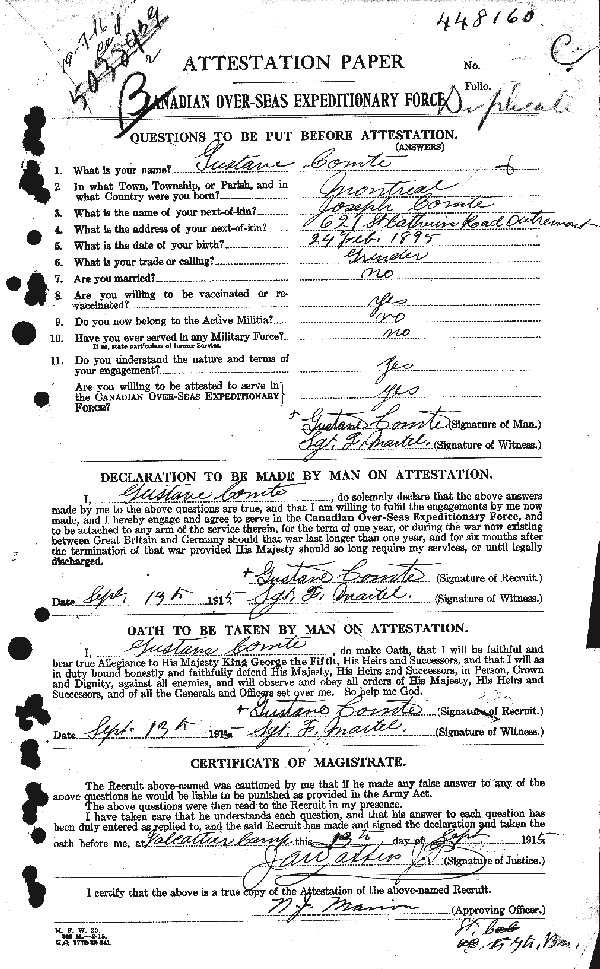 448160
C
ATTESTATION PAPER
No.
Folio.
CANADIAN OVER-SEAS EXPEDITIONARY FORCE
Duplicate
QUESTIONS TO BE PUT BEFORE ATTESTATION.
(ANSWERS)
1. What is your name? Gustave Comte
2. In what Town, Township, or Parish, and in what Country were you born? Montreal
3. What is the name of your next-of-kin? Joseph Comte
4. What is the address of your next-of-kin? 621 St Catherine Road Outremont
5. What is the date of your birth? 24 Feb. 1895
6. What is your trade or calling? Grinder
7. Are you married? no
8. Are you willing to be vaccinated or re-vaccinated? yes
9. Do you now belong to the Active Militia? no
10. Have you ever served in any Military Force? no
If so, state particulars of former Service.
11. Do you understand the nature and terms of your engagement? yes
Are you willing to be attested to serve in the CANADIAN OVER-SEAS EXPEDITIONARY FORCE? yes
+ Gustave Comte (Signature of Man.)
Sgt. F. Martel. (Signature of Witness.)
DECLARATION TO BE MADE BY MAN ON ATTESTATION.
I, Gustave Comte, do solemnly declare that the above answers
made by me to the above questions are true, and that I am willing to fulfil the engagements by me now
made, and I hereby engage and agree to serve in the Canadian Over-Seas Expeditionary Force, and
to be attached to any arm of the service therein, for the term of one year, or during the war now existing
between Great Britain and Germany should that war last longer than one year, and for six months after
the termination of that war provided His Majesty should so long require my services, or until legally
discharged.
+ Gustave Comte (Signature of Recruit.)
Date Sept. 13th 1915 Sgt. F. Martel. (Signature of Witness.)
OATH TO BE TAKEN BY MAN ON ATTESTATION.
I, Gustave Comte, do make Oath, that I will be faithful and
bear true Allegiance to His Majesty King George the Fifth, His Heirs and Successors, and that I will as
in duty bound honestly and faithfully defend His Majesty, His Heirs and Successors, in Person, Crown
and Dignity, against all enemies, and will observe and obey all orders of His Majesty, His Heirs and
Successors, and of all the Generals and Officers set over me. So help me God.
+ Gustave Comte (Signature of Recruit.)
Date Sept. 13th 1915 Sgt. F. Martel (Signature of Witness.)
CERTIFICATE OF MAGISTRATE.
The Recruit above-named was cautioned by me that if he made any false answer to any of the
above questions he would be liable to be punished as provided in the Army Act.
The above questions were then read to the Recruit in my presence.
I have taken care that he understands each question, and that his answer to each question has
been duly entered as replied to, and the said Recruit has made and signed the declaration and taken the
oath before me, at Valcartier Camp this 13th day of Sept 1915
(Signature of Justice.)
I certify that the above is a true copy of the Attestation of the above-named Recruit.
(Approving Officer.)
M. F. W. 23.